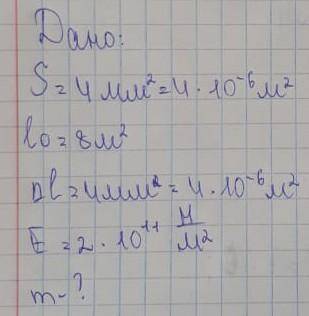 Дано:
S = 4 мм² = 4 · 10⁻⁶ м²
l₀ = 8 м²
Δl = 4 мм² = 4 · 10⁻⁶ м²
E = 2 · 10¹¹ Н/м²
m - ?